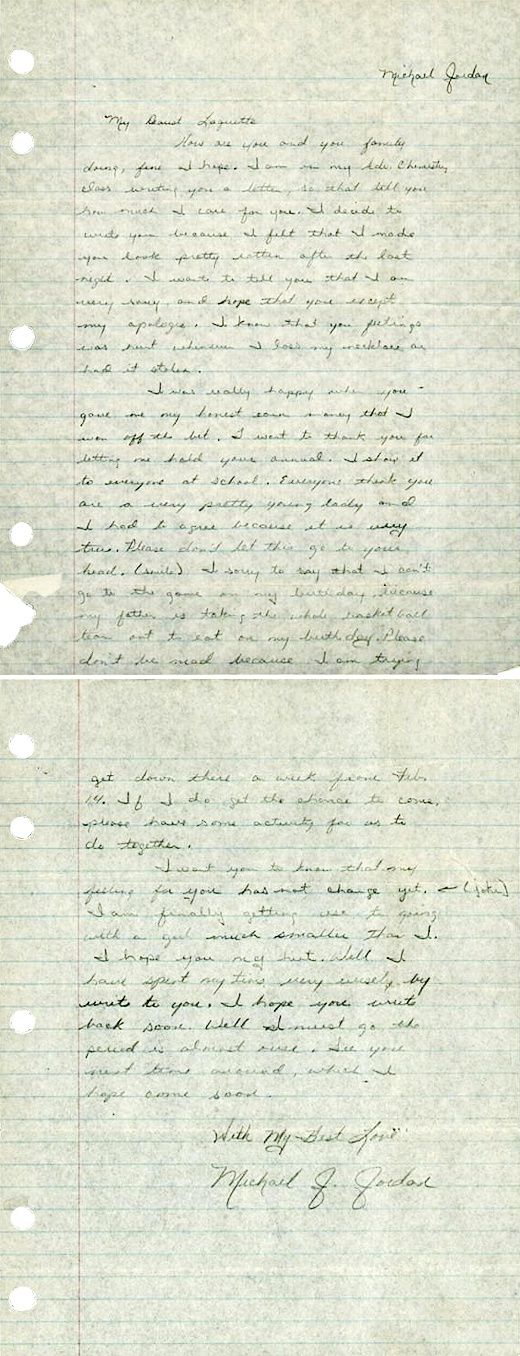 Michael Jordan
My Dearest Laquette
How are you and you family
doing, fine I hope. I am in my Adv. Chemistry
class writing you a letter, so that tell you
how much I care for you. I decide to
write you because I felt that I made
you look pretty rotten after the last
night. I want to tell you that I am
very sorry and hope that you except
my apologie. I know that you feelings
was hurt whenever I loss my necklace or
had it stolen.
I was really happy when you
gave me my honest earn money that I
won off the bet. I want to thank you for
letting me hold your annual. I show it
to everyone at school. Everyone think you
are a very pretty young lady and
I had to agree because it is very
true. Please don't let this go to your
head. (smile) I sorry to say that I can't
go to the game on my birthday because
my father is taking the whole basketball
team out to eat on my birthday. Please
don't be mad because I am trying
get down there a week from Feb.
14. If I do get the chance to come,
please have some activity for us to
do together.
I want you to know that my
feeling for you has not change yet. (joke)
I am finally getting use to going
with a girl much smaller than I.
I hope you my hurt. Well I
have spent my time very wisely by
write to you. I hope you write
back soon. Well I must go the
period is almost over. See you
next time around, which I
hope come soon.
With My Best Love
Michael J. Jordan